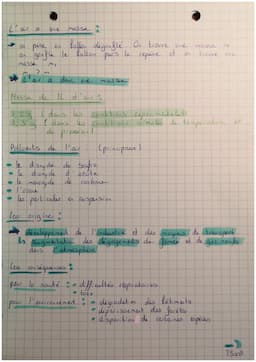 L'air a une masse :
→ on pèse un ballon dégonflé. On trouve une masse m
on gonfle le ballon puis le repèse et on trouve une
masse m₁
→ L'air a donc une masse
Masse de 1L d'air :
1,2 g (dans les conditions expérimentales)
1,3 g (dans les conditions normales de température et
de pression)
Polluants de l'air : (principaux)
• le dioxyde de soufre
• le dioxyde d'azote
• le monoxyde de carbone
• l'ozone
• les particules en suspension
Les origines :
→ développement de l'industrie et des moyens de transport
↳ augmentation des dégagements des fumées et de gaz nocifs
dans l'atmosphère
Les conséquences :
pour la santé : • difficultés respiratoires
• toux
pour l'environnement : • dégradation des bâtiments
• dépérissement des forêts
• disparition de certaines espèces